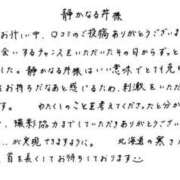 静かなる芹様
お忙しい中、口コミのご投稿ありがとうござい
会いするチャンスをいただいたその日からずっと
した。静かなる芹様は いい意味でとても
お持ちだなあと感いるため、刺激をいた
わたくしのことを考えてくださったと分か
、撮影協力までしていただきありがとうござ
が実現できますように。 北海道の寒さ
首を長くしてお待ちしております